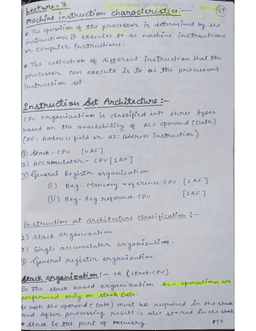 Lecture - 3
Machine instruction characteristics :-
* The operation of the processor is determined by the
instructions it executes to as machine instructions
or computer instructions.
* The collection of different instruction that the
processor can execute is to as the processor's
instruction set
Instruction Set Architecture :-
CPU organization is classified into three types
based on the availability of ALU operand (Data)
Address field or AI: Address instruction)
① Stack - CPU [0AF]
2) Accumulator - CPU [1AF]
3) General Register organization
(i) Reg. Memory reference CPU [2AF]
(ii) Reg - Reg reference CPU [3AF]
Instruction set architecture classification :-
1) Stack organization
2) Single accumulator organization.
3) General register organization.
Stack organization :- OR (Stack-CPU)
In the stack based organization ALU operations are
performed only on stack Data.
both the operand (Data) must be required in the stack
and after processing result is also stored in the stack
* Stack is the part of memory.
PTO